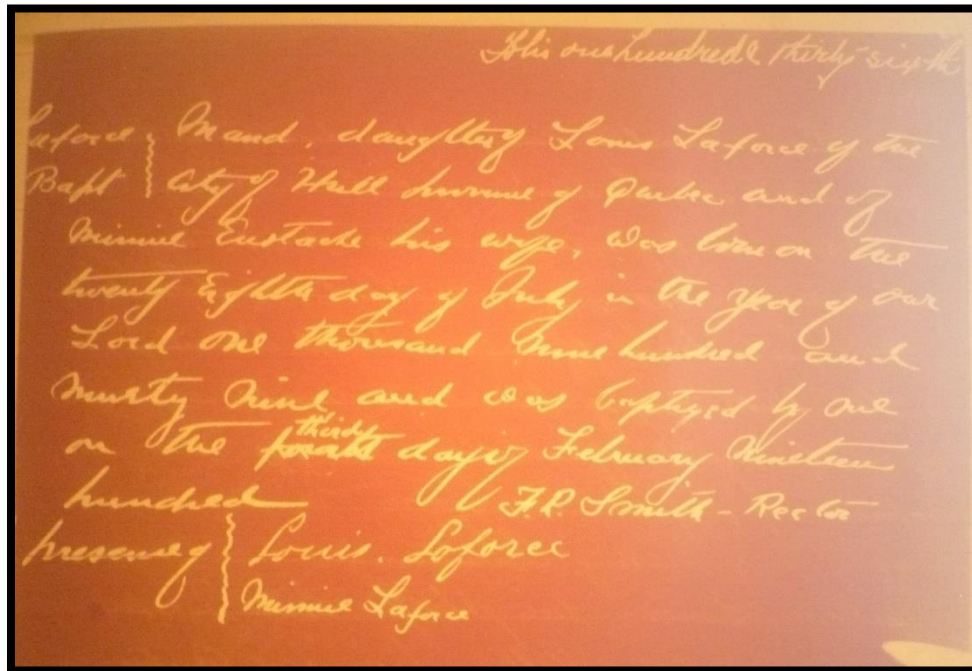 Folio one hundred & thirty sixth
Laforce Maud, daughter of Louis Laforce of the
Bapt City of Hull province of Quebec and of
Minnie Eustache his wife, was born on the
twenty Eighth day of July in the year of our
Lord one thousand Nine hundred and
Ninety Nine and was baptized by me
on the fourth third day of February Nineteen
hundred F.R. Smith - Rector
presence of Louis. Laforce
Minnie Laforce